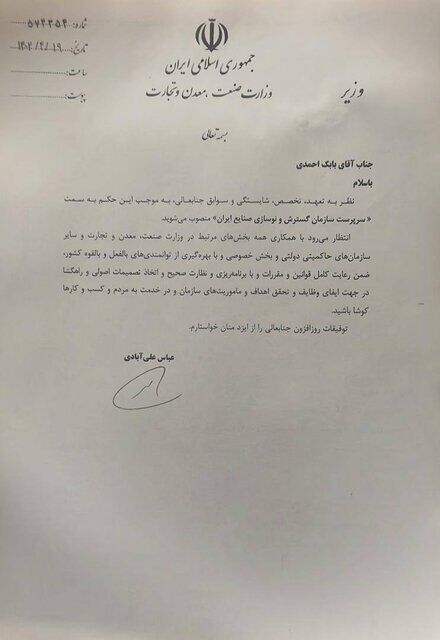 شماره: ۵۷۴۳۵۴
تاریخ:
ساعت:
پیوست:
جمهوری اسلامی ایران
وزارت صنعت، معدن و تجارت
وزیر
بسمه تعالی
جناب آقای بابک احمدی
باسلام
نظر به تعهد، تخصص، شایستگی و سوابق جنابعالی، به موجب این حکم به سمت
«سرپرست سازمان گسترش و نوسازی صنایع ایران» منصوب می‌شوید.
انتظار می‌رود با همکاری همه بخش‌های مرتبط در وزارت صنعت، معدن و تجارت و سایر
سازمان‌های حاکمیتی دولتی و بخش خصوصی و با بهره‌گیری از توانمندی‌های بالفعل و بالقوه کشور،
ضمن رعایت کامل قوانین و مقررات و با برنامه‌ریزی و نظارت صحیح و اتخاذ تصمیمات اصولی و راهگشا
در جهت ایفای وظایف و تحقق اهداف و ماموریت‌های سازمان و در خدمت به مردم و کسب و کارها
کوشا باشید.
توفیقات روزافزون جنابعالی را از ایزد منان خواستارم.
عباس علی‌آبادی